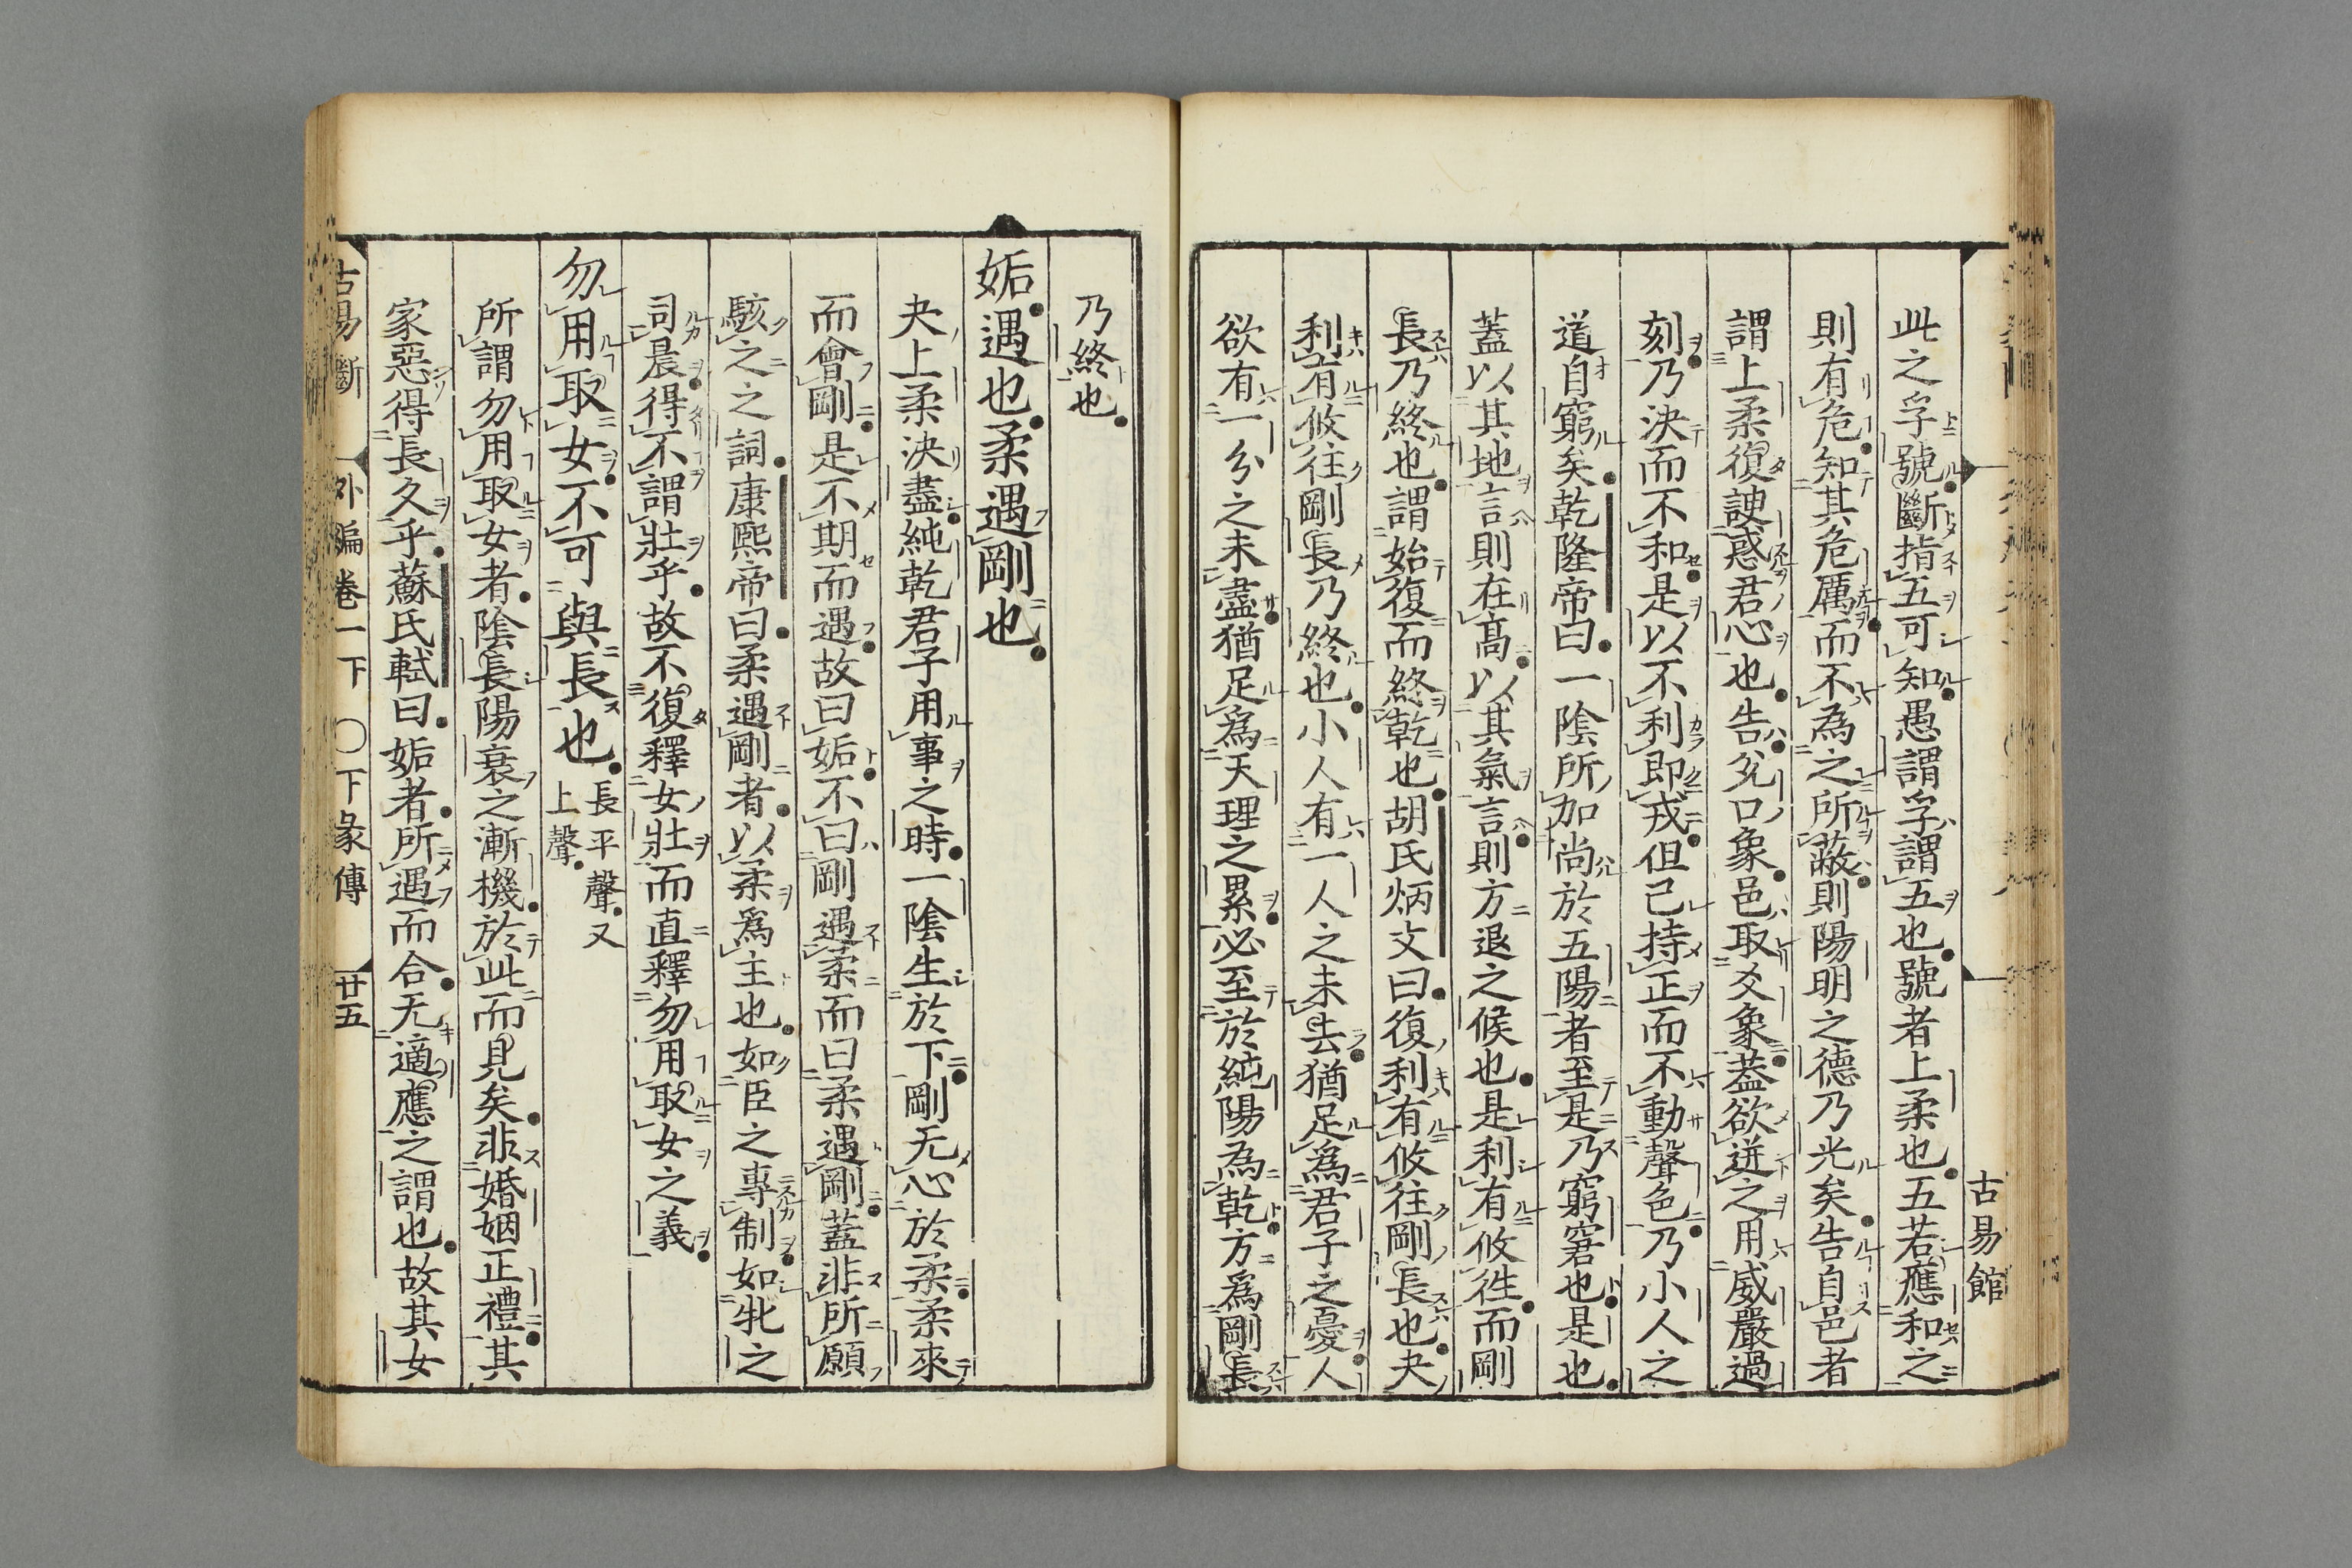 此之孚號斷指五可知愚謂孚謂五也號者上柔也五若應和之
則有危知其危厲而不為之所蔽則陽明之德乃光矣告自邑者
謂上柔復諛惑君心也告兊口象邑取爻象葢欲迸之用威嚴過
刻乃決而不和是以不利即戎但己持正而不動聲色乃小人之
道自窮矣乾隆帝曰一陰所加尚於五陽者至是乃窮窘也是也
蓋以其地言則在髙以其氣言則方退之候也是利有攸徃而剛
長乃終也謂始復而終乾也胡氏炳文曰復利有攸往剛長也夬
利有攸往剛長乃終也小人有一人之未去猶足為君子之憂人
欲有一分之未盡猶足為天理之累必至於純陽為乾方爲剛長
古易館
乃終也
姤遇也柔遇剛也
夬上柔決盡純乾君子用事之時一陰生於下剛无心於柔柔來
而會剛是不期而遇故曰姤不曰剛遇柔而曰柔遇剛蓋非所願
駭之之詞康熙帝曰柔遇剛者以柔爲主也如臣之專制如牝之
司晨得不謂壯乎故不復釋女壯而直釋勿用取女之義
勿用取女不可與長也長平聲又
上聲
所謂勿用取女者陰長陽衰之漸機於此而見矣非婚姻正禮其
家惡得長久乎蘇氏軾曰姤者所遇而合无適應之謂也故其女
古易斷 外編卷一下 〇下彖傳 廿五